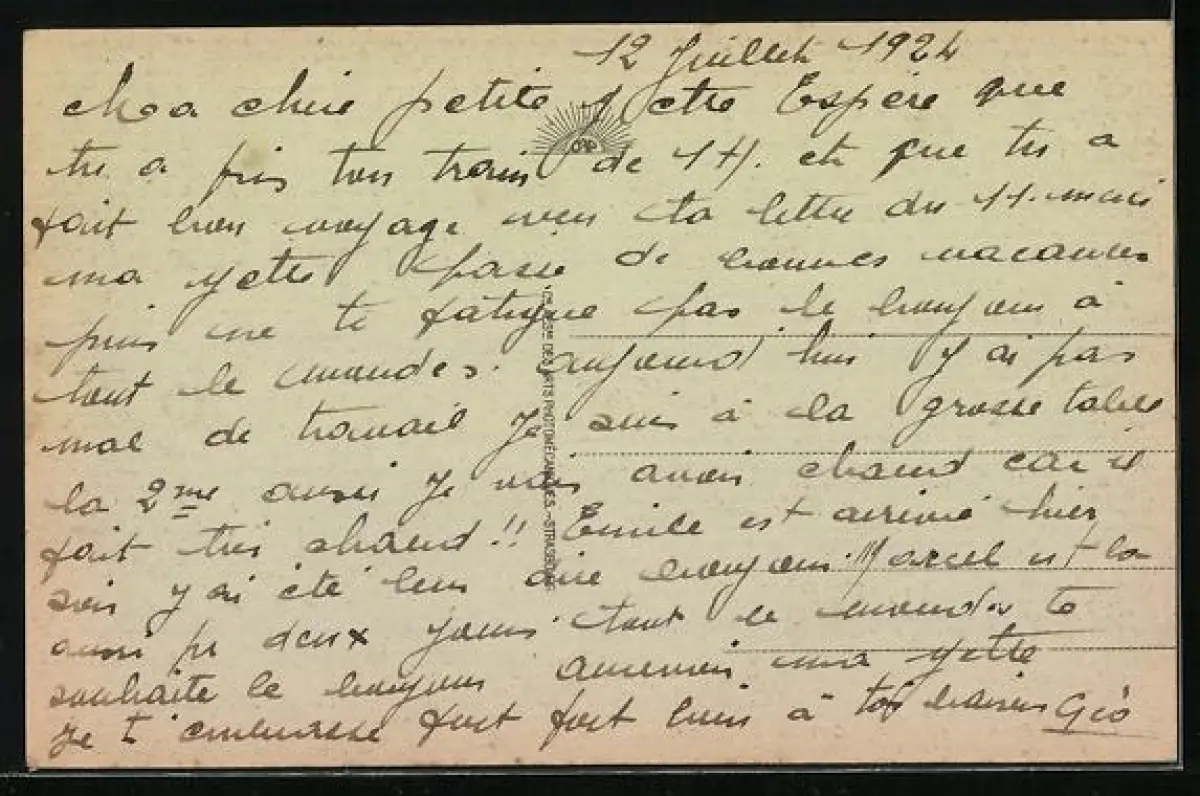 12 Juillet 1924
Ma chère petite Yette Espère que
tu a pris ton train de 1H. et que tu a
fait bon voyage reçu ta lettre du 11. merci
ma yette passe de bonnes vacances
puis ne te fatigue pas le bonjour à
tout le mondes. aujourd'hui y ai pas
mal de travail Je suis à la grosse table
la 2me aussi je vais avoir chaud car il
fait très chaud!! Emile est arrivé hier
soir y ai été leur dire bonjour. Marcel est la
aussi pr deux jours. tout le mondes te
souhaite le bonjour aurevoir ma yette
Je t'embrasse fort fort bien à toi baisers Gio
ORP
DES ARTS PHOTOMÉCANIQUES - STRASBOURG